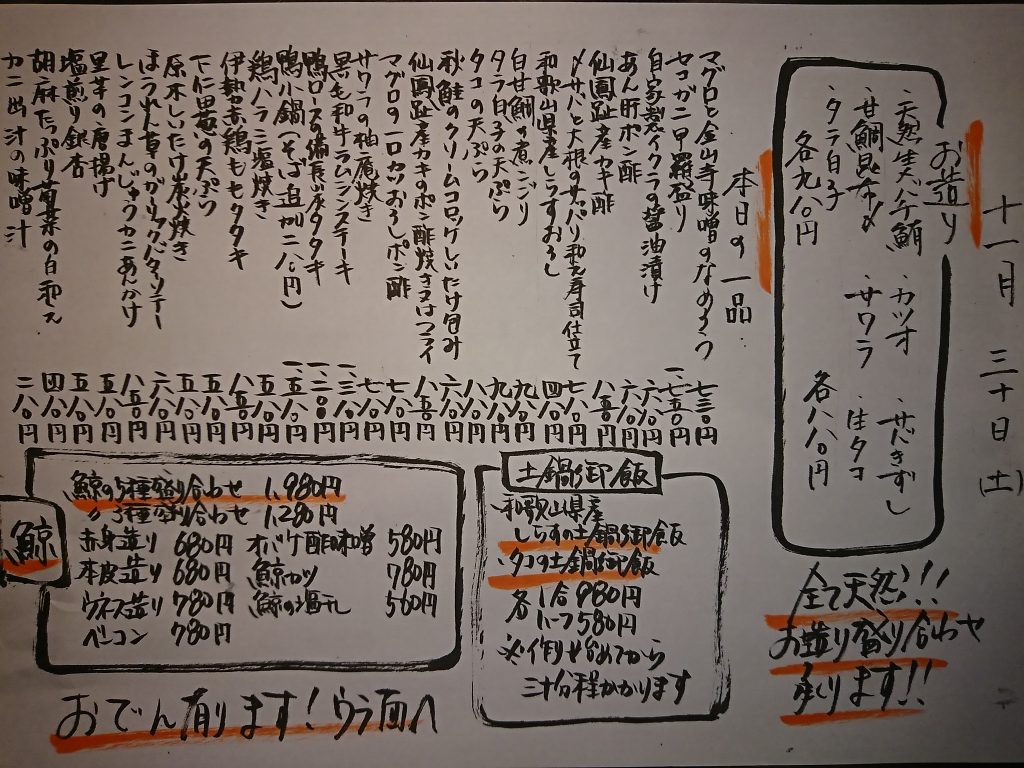 十一月三十日(土)
お造り
・天然生メバチ鮪 ・カツオ ・サバきずし
・甘鯛昆布〆 ・サワラ ・生タコ
・タラ白子
各九八〇円 各八八〇円
全て天然!!
お造り盛り合わせ
承ります!!
本日の一品
マグロと金山寺味噌のなめろう 七三〇円
セコガニ甲羅盛り 一、七五〇円
自家製イクラの醤油漬け 六八〇円
あん肝ポン酢 六八〇円
仙鳳趾産カキ酢 八五〇円
〆サバと大根のサッパリ和え寿司仕立て 七八〇円
和歌山県産しらすおろし 四八〇円
白甘鯛の煮こごり 九八〇円
タラ白子の天ぷら 九八〇円
タコの天ぷら 八八〇円
秋鮭のクリームコロッケしいたけ包み 六八〇円
仙鳳趾産カキのポン酢焼き又はフライ 八五〇円
マグロの一口カツおろしポン酢 七八〇円
サワラの柚庵焼き 七八〇円
黒毛和牛ラムシンステーキ 一、三八〇円
鴨ロースの備長炭タタキ 一、二〇〇円
鴨小鍋(そば追加二八〇円) 一、五八〇円
鶏ハラミ塩焼き 五八〇円
伊勢赤鶏ももタタキ 八五〇円
下仁田葱の天ぷら 五八〇円
原木しいたけ炭火焼き 五八〇円
ほうれん草のガーリックバターソテー 六八〇円
レンコンまんじゅうカニあんかけ 八五〇円
里芋の唐揚げ 五八〇円
塩煎り銀杏 五八〇円
胡麻たっぷり菊菜の白和え 四八〇円
カニ出汁の味噌汁 二八〇円
土鍋御飯
和歌山県産
しらすの土鍋御飯
タコの土鍋御飯
各 1合 980円
ハーフ 580円
※作り始めてから
三十分程かかります
鯨
鯨の5種盛り合わせ 1,980円
〃 3種盛り合わせ 1,280円
赤身造り 680円 オバケ酢味噌 580円
本皮造り 680円 鯨カツ 780円
ウネス造り 780円 鯨の塩干し 560円
ベーコン 780円
おでん有ります!ウラ面へ